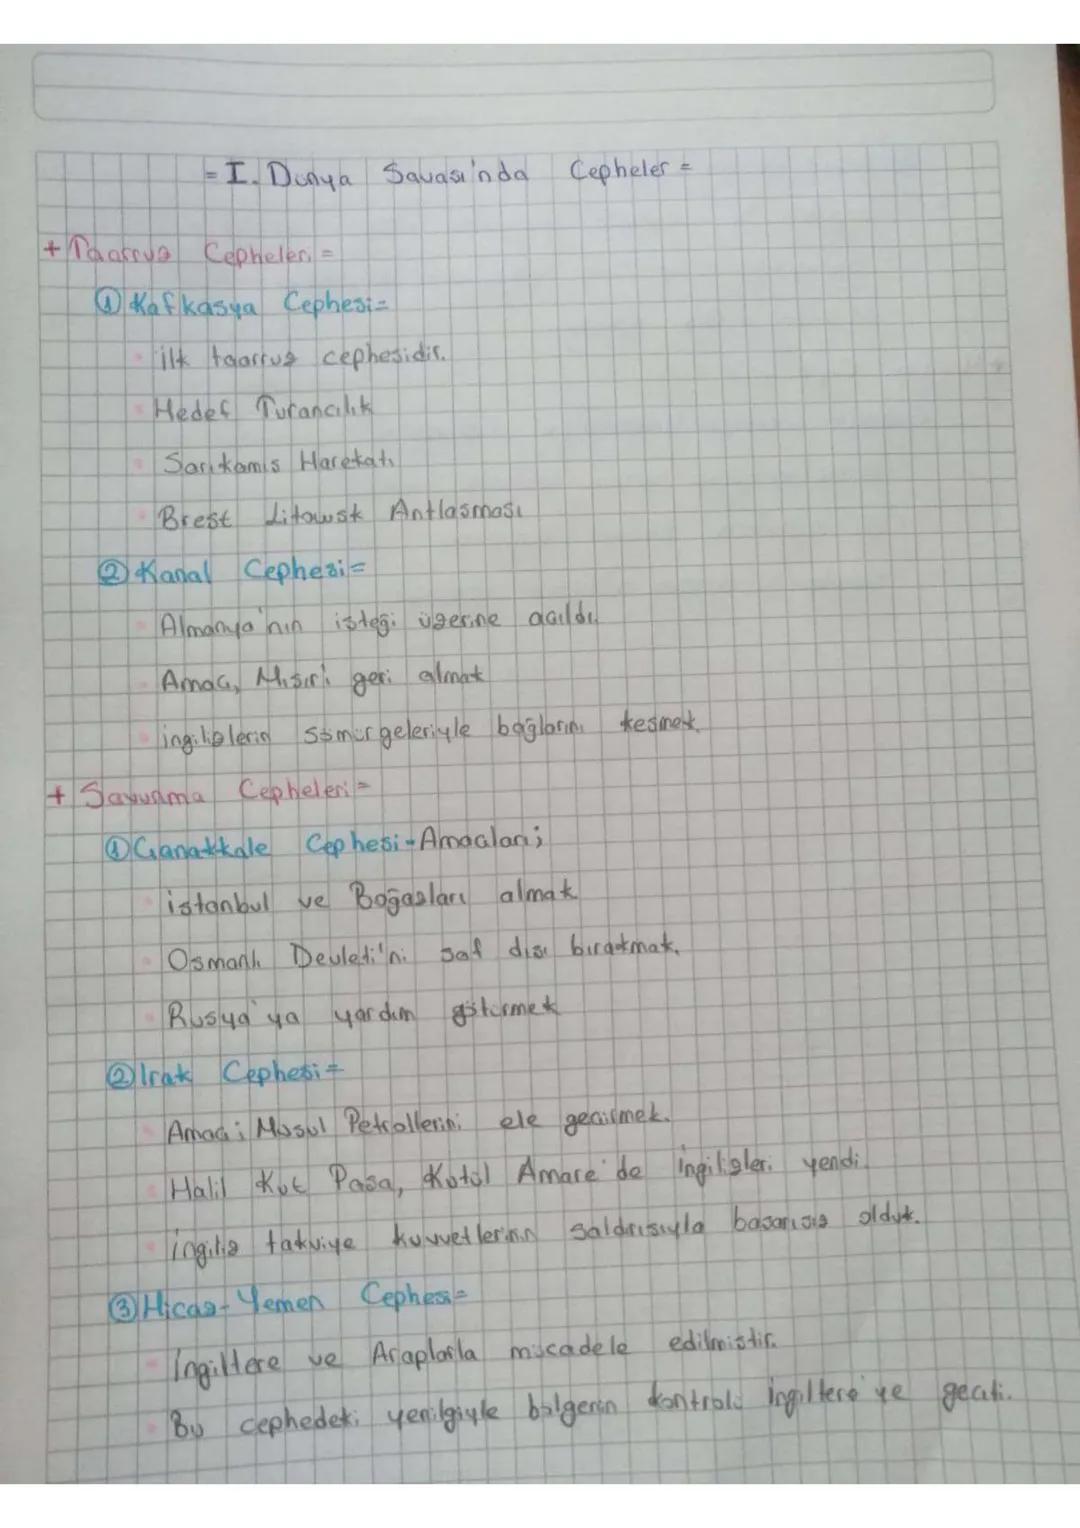 = I. Dünya Savası'nda Cepheler =
+ Taarruz Cepheleri =
① Kafkasya Cephesi =
• ilk taarruz cephesidir.
• Hedef Turancılık
• Sarıkamıs Harekatı
• Brest Litowsk Antlasması
② Kanal Cephesi =
• Almanya'nın isteği üzerine acıldı.
• Amac, Mısır'ı geri almak
• ingilizlerin sömürgeleriyle bağlarını kesmek.
+ Savunma Cepheleri =
① Canakkale Cephesi - Amacları;
• istanbul ve Boğazları almak
• Osmanlı Devleti'ni saf dısı bırakmak.
• Rusya'ya yardım götürmek
② Irak Cephesi =
• Amac; Musul Petrollerini ele gecirmek.
• Halil Kut Pasa, Kutül Amare'de ingilizleri yendi.
• ingiliz takviye kuvvetlerinin saldırısıyla basarısız olduk.
③ Hicaz - Yemen Cephesi =
• ingiltere ve Araplarla mücadele edilmistir.
• Bu cephedeki yenilgiyle bölgenin kontrolü ingiltere'ye gecti.